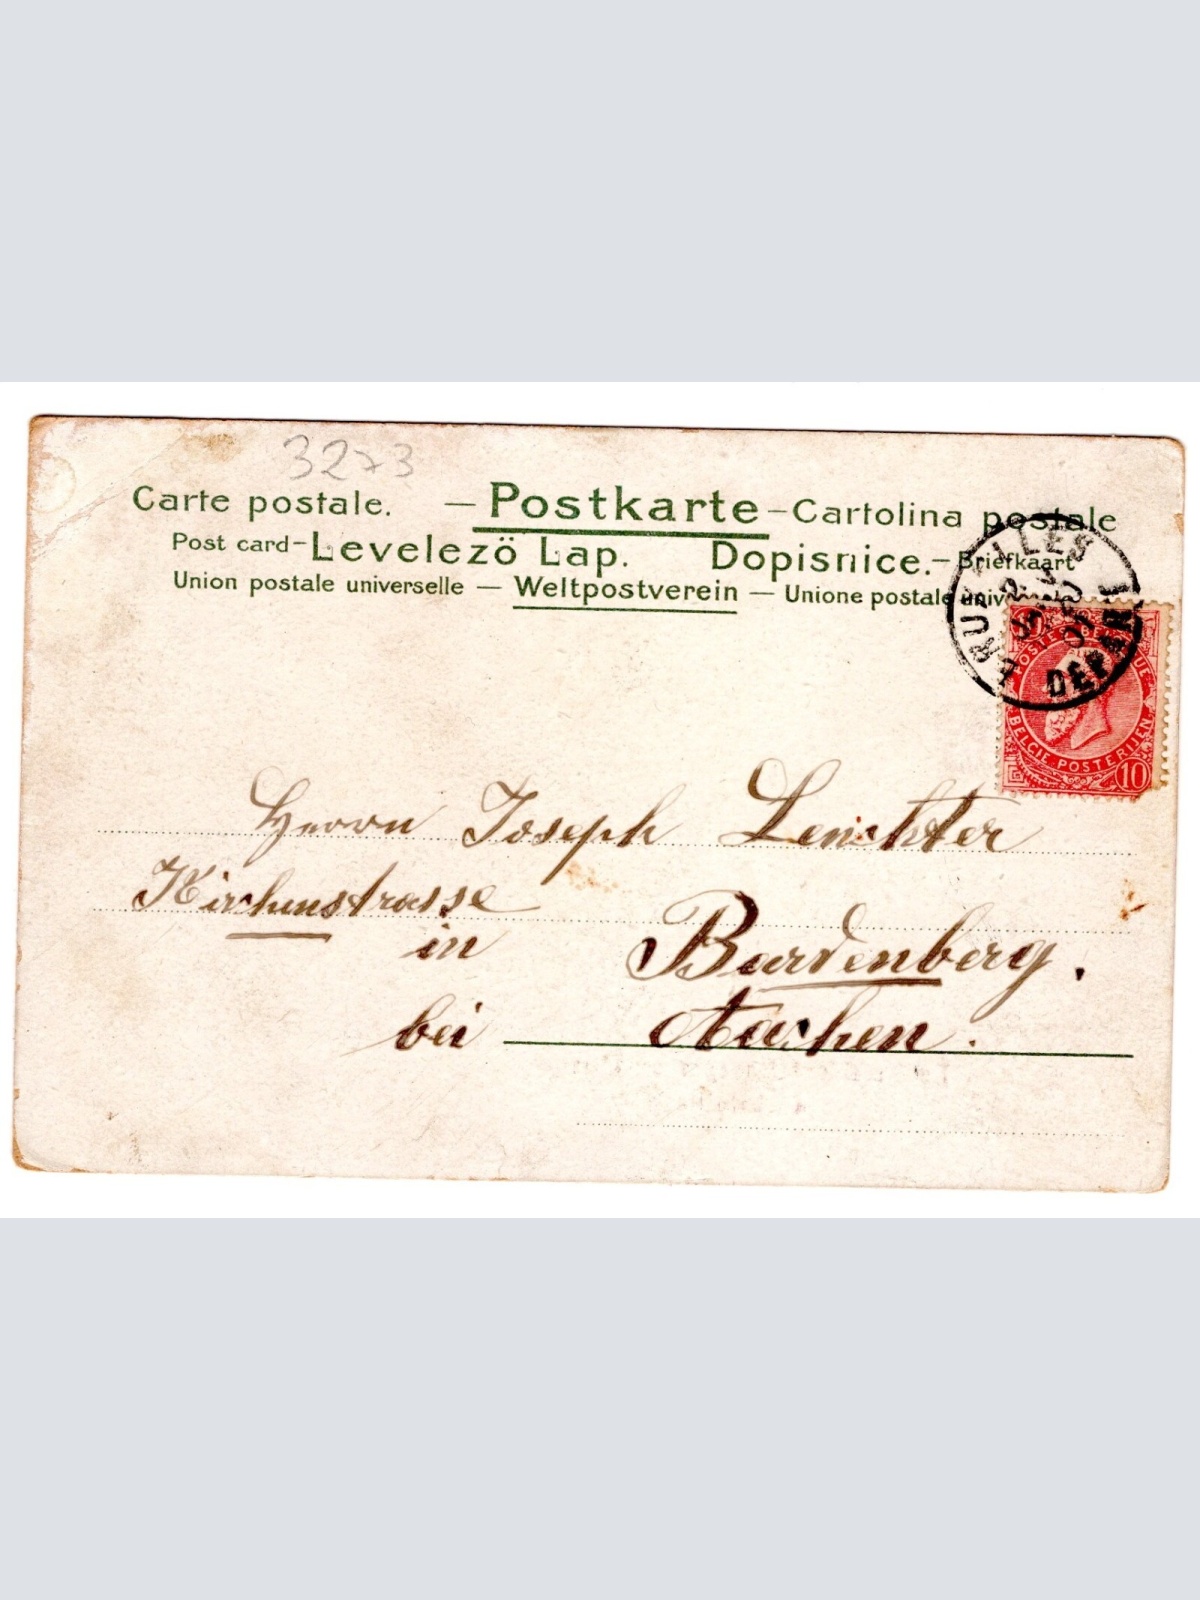 3273
Carte postale. — Postkarte – Cartolina postale
Post card – Levelezö Lap. Dopisnice. – Briefkaart
Union postale universelle — Weltpostverein — Unione postale univ
BRUXELLES
DEPART
BELGIE POSTERIJEN
10
Herrn Joseph
Kirchenstrasse
in Bardenberg.
bei Aachen.